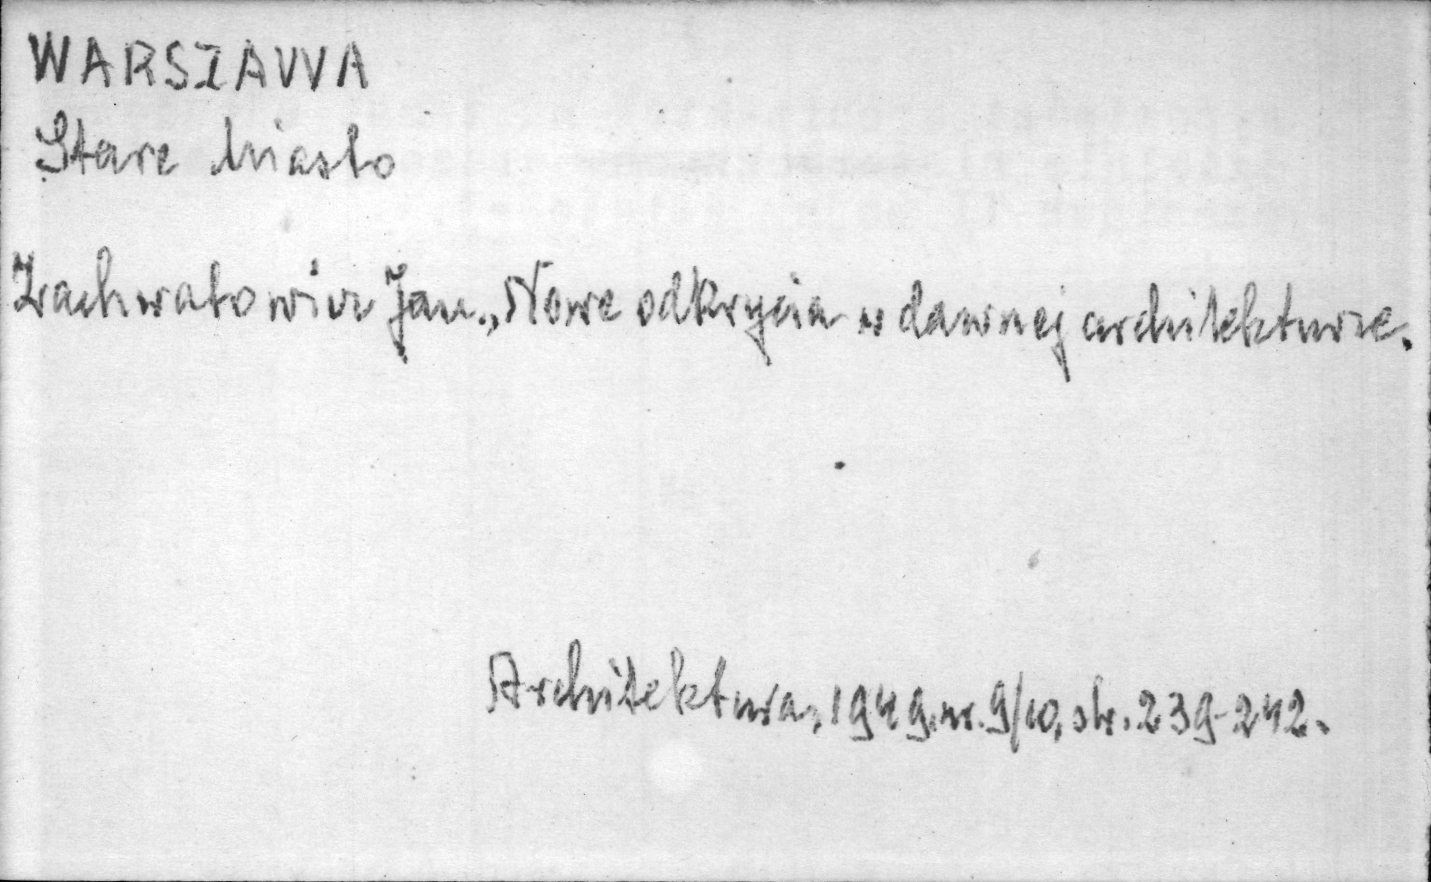 WARSZAWA
Stare Miasto
Zachwatowicz Jan., Nowe odkrycia w dawnej architekturze.
Architektura, 1949.nr.9/10, str. 239-242.